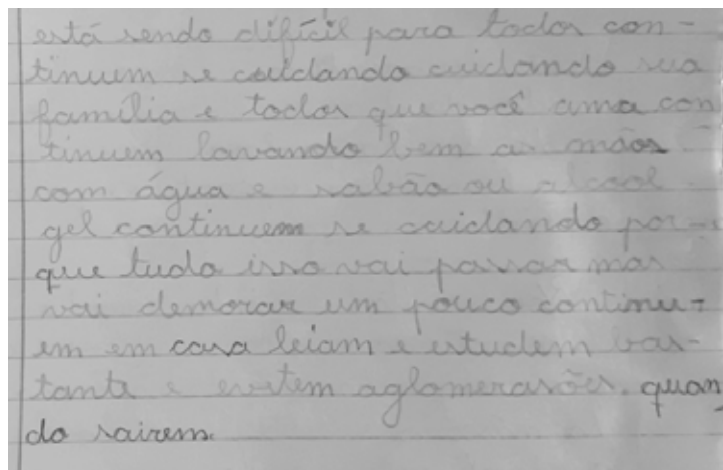 está sendo difícil para todos con-
tinuem se cuidando cuidando sua
família e todos que você ama con
tinuem lavando bem as mãos
com água e sabão ou alcool
gel continuem se cuidando por-
que tudo isso vai passar mas
vai demorar um pouco continu-
em em casa leiam e estudem bas-
tante e evitem aglomerasões. quan
do sairem.